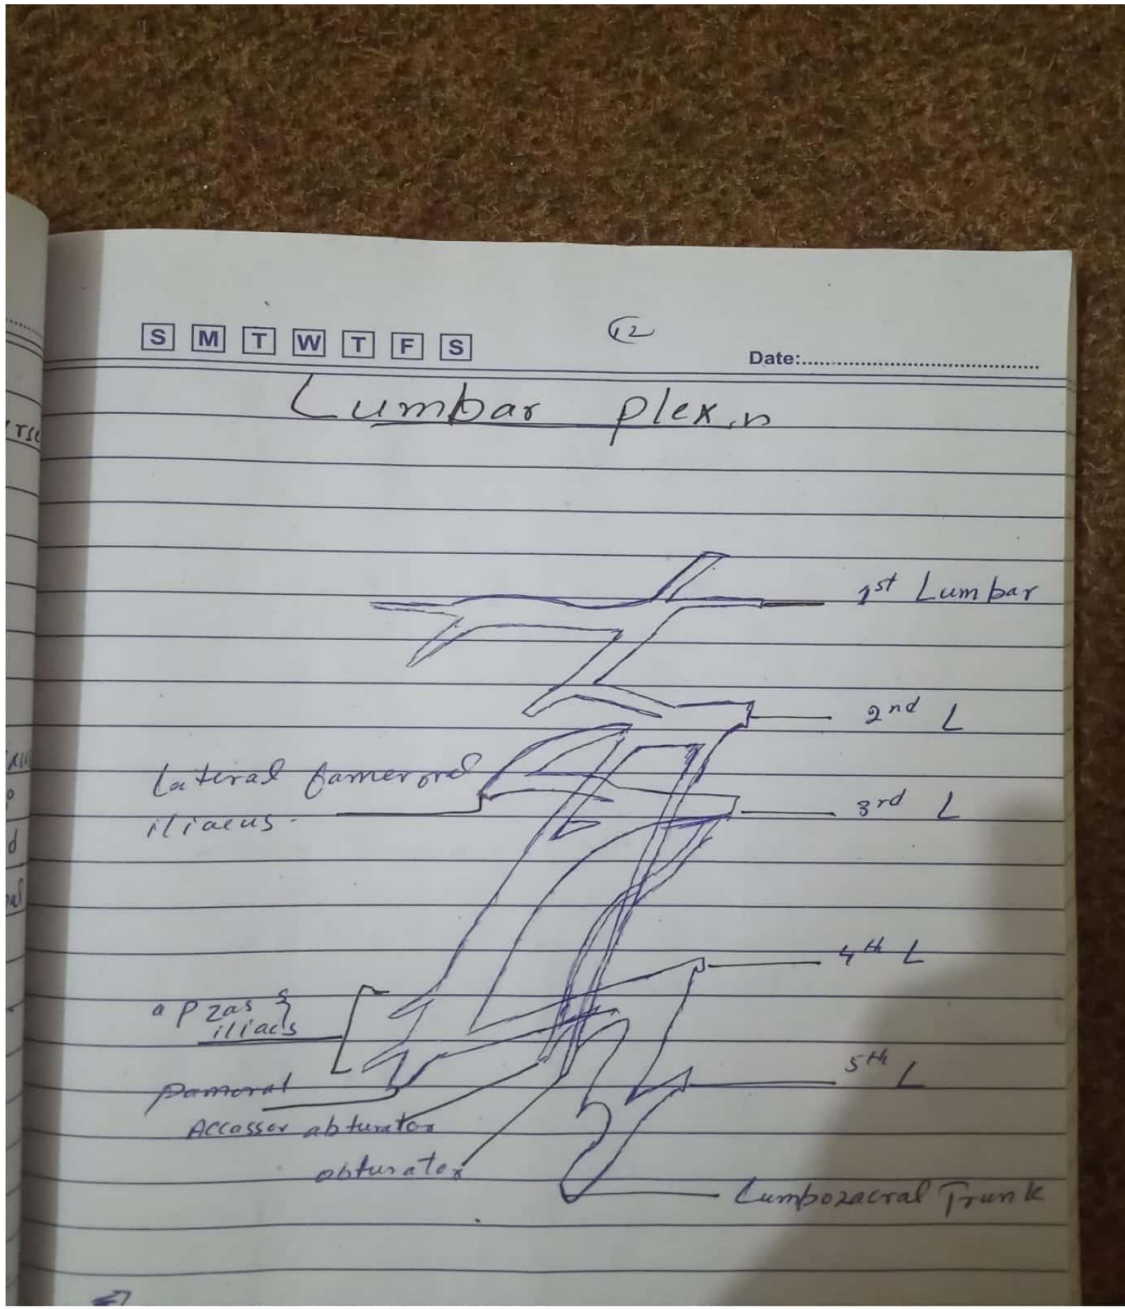 S M T W T F S
12
Date:
Lumbar plex.n
1st Lumbar
2nd L
Lateral fameroral
iliaeus.
3rd L
4th L
Pzas &
iliacs
5th L
pamoral
Accasser obturator
obturator
Lumbozacral Trunk